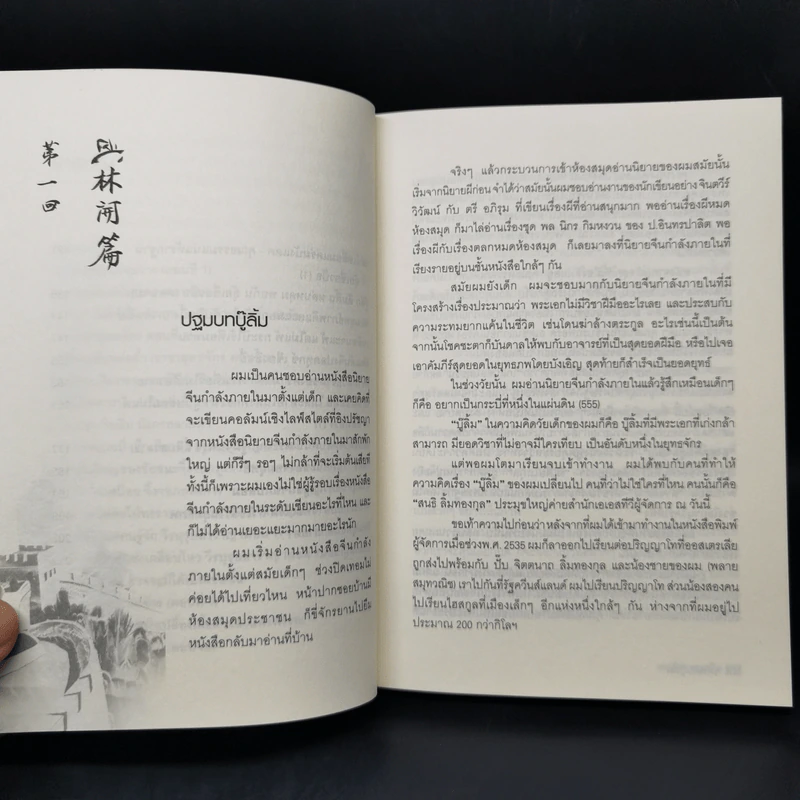 第一回
武林開篇
ปฐมบทบู๊ลิ้ม
ผมเป็นคนชอบอ่านหนังสือนิยาย
จีนกำลังภายในมาตั้งแต่เด็ก และเคยคิดที่
จะเขียนคอลัมน์เชิงไลฟ์สไตล์ที่อิงปรัชญา
จากหนังสือนิยายจีนกำลังภายในมาสักพัก
ใหญ่ แต่ก็รีๆ รอๆ ไม่กล้าที่จะเริ่มต้นเสียที
ทั้งนี้ก็เพราะผมเองไม่ใช่ผู้รู้รอบเรื่องหนังสือ
จีนกำลังภายในระดับเซียนอะไรที่ไหน และ
ก็ไม่ได้อ่านเยอะแยะมากมายอะไรนัก
ผมเริ่มอ่านหนังสือจีนกำลัง
ภายในตั้งแต่สมัยเด็กๆ ช่วงปิดเทอมไม่
ค่อยได้ไปเที่ยวไหน หน้าปากซอยบ้านมี
ห้องสมุดประชาชน ก็ขี่จักรยานไปยืม
หนังสือกลับมาอ่านที่บ้าน
จริงๆ แล้วกระบวนการเข้าห้องสมุดอ่านนิยายของผมสมัยนั้น
เริ่มจากนิยายผีก่อน จำได้ว่าสมัยนั้นผมชอบอ่านงานของนักเขียนอย่าง จินตวีร์
วิวัฒน์ กับ ตรี อภิรุม ที่เขียนเรื่องผีที่อ่านสนุกมาก พออ่านเรื่องผีหมด
ห้องสมุด ก็มาไล่อ่านเรื่องชุด พล นิกร กิมหงวน ของ ป.อินทรปาลิต พอ
เรื่องผีกับเรื่องตลกหมดห้องสมุด ก็เลยมาลงที่นิยายจีนกำลังภายในที่
เรียงรายอยู่บนชั้นหนังสือใกล้ๆ กัน
สมัยผมยังเด็ก ผมจะชอบมากกับนิยายจีนกำลังภายในที่มี
โครงสร้างเรื่องประมาณว่า พระเอกไม่มีวิชาฝีมืออะไรเลย และประสบกับ
ความระทมยากแค้นในชีวิต เช่นโดนฆ่าล้างตระกูล อะไรเช่นนี้เป็นต้น
จากนั้นโชคชะตาก็บันดาลให้พบกับอาจารย์ที่เป็นสุดยอดฝีมือ หรือไปเจอ
เอาคัมภีร์สุดยอดในยุทธภพโดยบังเอิญ สุดท้ายก็สำเร็จเป็นยอดยุทธ์
ในช่วงวัยนั้น ผมอ่านนิยายจีนกำลังภายในแล้วรู้สึกเหมือนเด็กๆ
ก็คือ อยากเป็นกระบี่ที่หนึ่งในแผ่นดิน (555)
“บู๊ลิ้ม” ในความคิดวัยเด็กของผมก็คือ บู๊ลิ้มที่มีพระเอกที่เก่งกล้า
สามารถ มียอดวิชาที่ไม่อาจมีใครเทียบ เป็นอันดับหนึ่งในยุทธจักร
แต่พอผมโตมาเรียนจบเข้าทำงาน ผมได้พบกับคนที่ทำให้
ความคิดเรื่อง “บู๊ลิ้ม” ของผมเปลี่ยนไป คนที่ว่าไม่ใช่ใครที่ไหน คนนั้นก็คือ
“สนธิ ลิ้มทองกุล” ประมุขใหญ่ค่ายสำนักเอเอสทีวีผู้จัดการ ณ วันนี้
ขอเท้าความไปก่อนว่าหลังจากที่ผมได้เข้ามาทำงานในหนังสือพิมพ์
ผู้จัดการเมื่อช่วงพ.ศ. 2535 ผมก็ลาออกไปเรียนต่อปริญญาโทที่ออสเตรเลีย
ถูกส่งไปพร้อมกับ ปั๊บ จิตตนาถ ลิ้มทองกุล และน้องชายของผม (พลาย
สมุทวณิช) เราไปกันที่รัฐควีนส์แลนด์ ผมไปเรียนปริญญาโท ส่วนน้องสองคน
ไปเรียนไฮสกูลที่เมืองเล็กๆ อีกแห่งหนึ่งใกล้ๆ กัน ห่างจากที่ผมอยู่ไป
ประมาณ 200 กว่ากิโลฯ